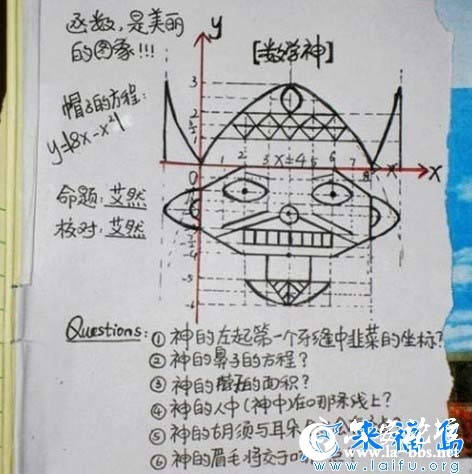 函数,是美丽
的图象!!!
[数学神]
帽子的方程:
y=|8x-x²|
命题:艾然
核对:艾然
y
3
2
1
0
1 2 3 x=4 5 6 7 8 x
X
-1
-4
-5
-6
Questions:
①神的左起第一个牙缝中韭菜的坐标?
②神的鼻子的方程?
③神的帽子的面积?
④神的人中(神中)在哪条线上?
⑤神的胡须与耳朵
⑥神的眉毛将交于
来福岛
www.laifu.org
la-bbs.net